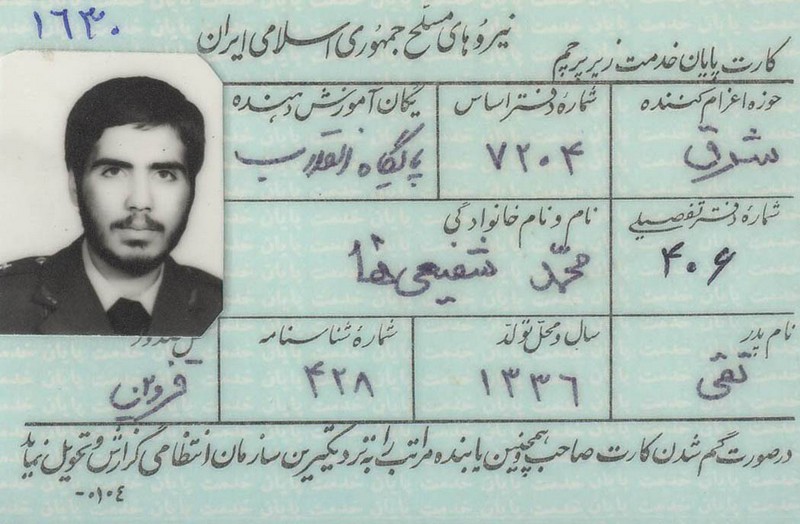 ۱۶۳۰
نیروهای مسلح جمهوری اسلامی ایران
کارت پایان خدمت زیر پرچم
حوزه اعزام کننده
شرق
شمارهٔ دفتر اساس
۷۲۰۴
یگان آموزش دهنده
پایگاه
شمارهٔ دفتر تفصیلی
۴۰۶
نام و نام خانوادگی
محمد شفیعی‌ها
نام پدر
تقی
سال و محل تولد
۱۳۳۶
شمارهٔ شناسنامه
۴۲۸
محل صدور
قزوین
در صورت گم شدن کارت صاحب و همچنین یابنده مراتب را به نزدیکترین سازمان انتظامی گزارش و تحویل نماید